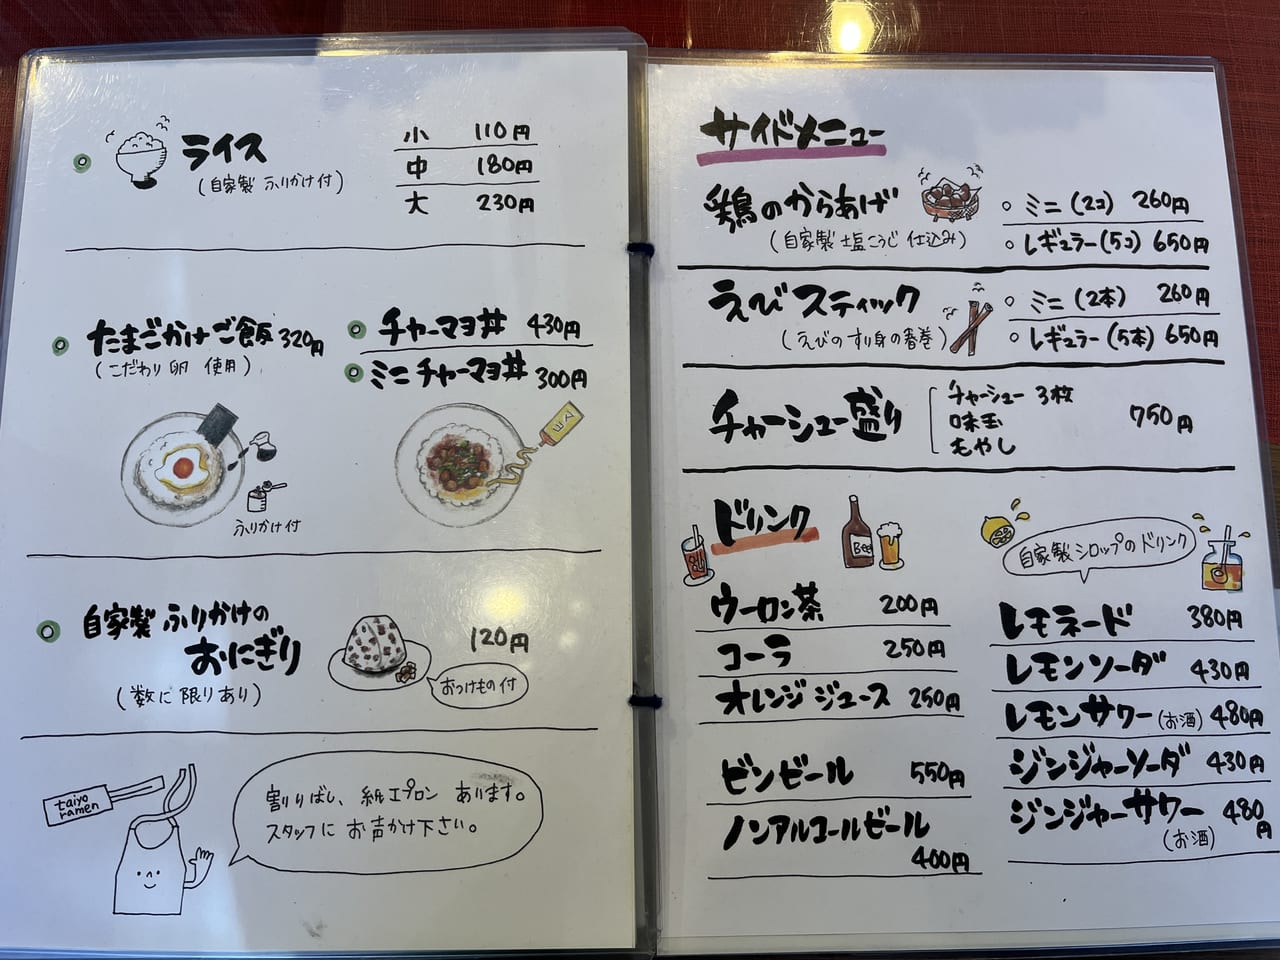 ライス
(自家製 ふりかけ付)
小 110円
中 180円
大 230円
たまごかけご飯 320円
(こだわり卵 使用)
ふりかけ付
チャーマヨ丼 430円
ミニチャーマヨ丼 300円
マヨ
自家製 ふりかけの
おにぎり
(数に限りあり)
120円
おつけもの付
taiyo
ramen
割りばし、紙エプロン あります。
スタッフに お声かけ下さい。
サイドメニュー
鶏のからあげ
(自家製 塩こうじ 仕込み)
ミニ (2コ) 260円
レギュラー (5コ) 650円
えびスティック
(えびのすり身の春巻)
ミニ (2本) 260円
レギュラー (5本) 650円
チャーシュー盛り
チャーシュー 3枚
味玉
もやし
750円
ドリンク
Beer
ウーロン茶 200円
コーラ 250円
オレンジジュース 250円
ビンビール 550円
ノンアルコールビール
400円
自家製シロップのドリンク
レモネード 380円
レモンソーダ 430円
レモンサワー (お酒) 480円
ジンジャーソーダ 430円
ジンジャーサワー 480円
(お酒)